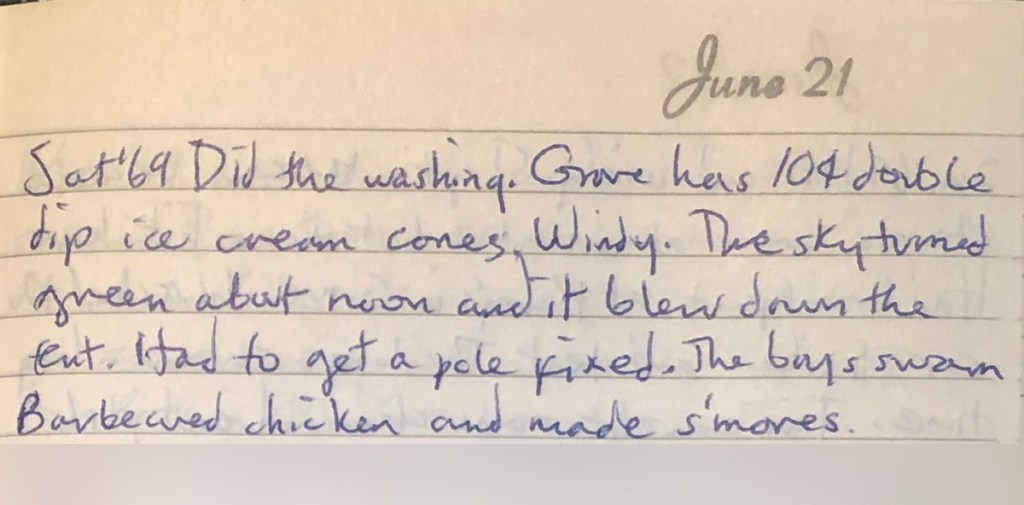 June 21
Sat '69 Did the washing. Grove has 10¢ double
dip ice cream cones, Windy. The sky turned
green about noon and it blew down the
tent. Had to get a pole fixed. The boys swam
Barbecued chicken and made s'mores.